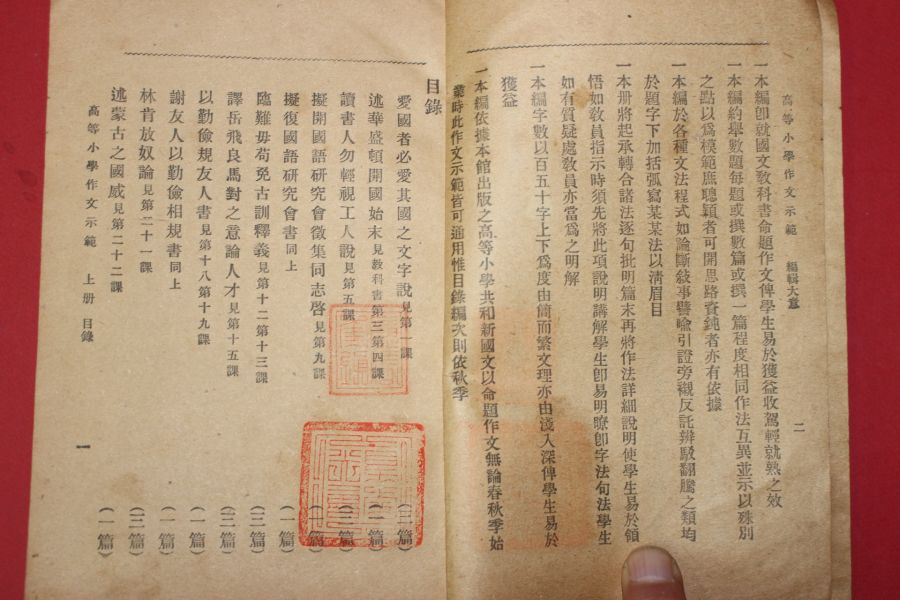 高等小學作文示範　編輯大意　二
一本編卽就國文敎科書命題作文俾學生易於獲益收駕輕就熟之效
一本編約舉數題每題或撰數篇或撰一篇程度相同作法互異並示以殊別
之點以爲模範庶聰穎者可開思路資鈍者亦有依據
一本編於各種文法程式如論斷敍事譬喩引證旁襯反託辨駁翻騰之類均
於題字下加括弧寫某某法以淸眉目
一本册將起承轉合諸法逐句批明篇末再將作法詳細說明使學生易於領
悟如敎員指示時須先將此項說明講解學生卽易明瞭卽字法句法學生
如有質疑處敎員亦當爲之明解
一本編字數以百五十字上下爲度由簡而繁文理亦由淺入深俾學生易於
獲益
一本編依據本館出版之高等小學共和新國文以命題作文無論春秋季始
業時此作文示範皆可通用惟目錄編次則依秋季
目錄
愛國者必愛其國之文字說見第一課（三篇）
述華盛頓開國始末見敎科書第三第四課（二篇）
讀書人勿輕視工人說見第五課（三篇）
擬開國語硏究會徵集同志啓見第九課（一篇）
擬復國語硏究會書同上（一篇）
臨難毋苟免古訓釋義見第十二第十三課（三篇）
譯岳飛良馬對之意論人才見第十五課（三篇）
以勤儉規友人書見第十八第十九課（一篇）
謝友人以勤儉相規書同上（一篇）
林肯放奴論見第二十一課（三篇）
述蒙古之國威見第二十二課（一篇）
高等小學作文示範　上册　目錄　一